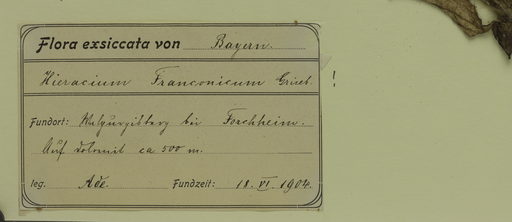 Flora exsiccata von Bayern.
Hieracium Franconicum Griseb. !
Fundort: Walpurgisberg bei Forchheim.
Auf Dolomit ca 500 m.
leg. Ade. Fundzeit: 18. VI. 1904.